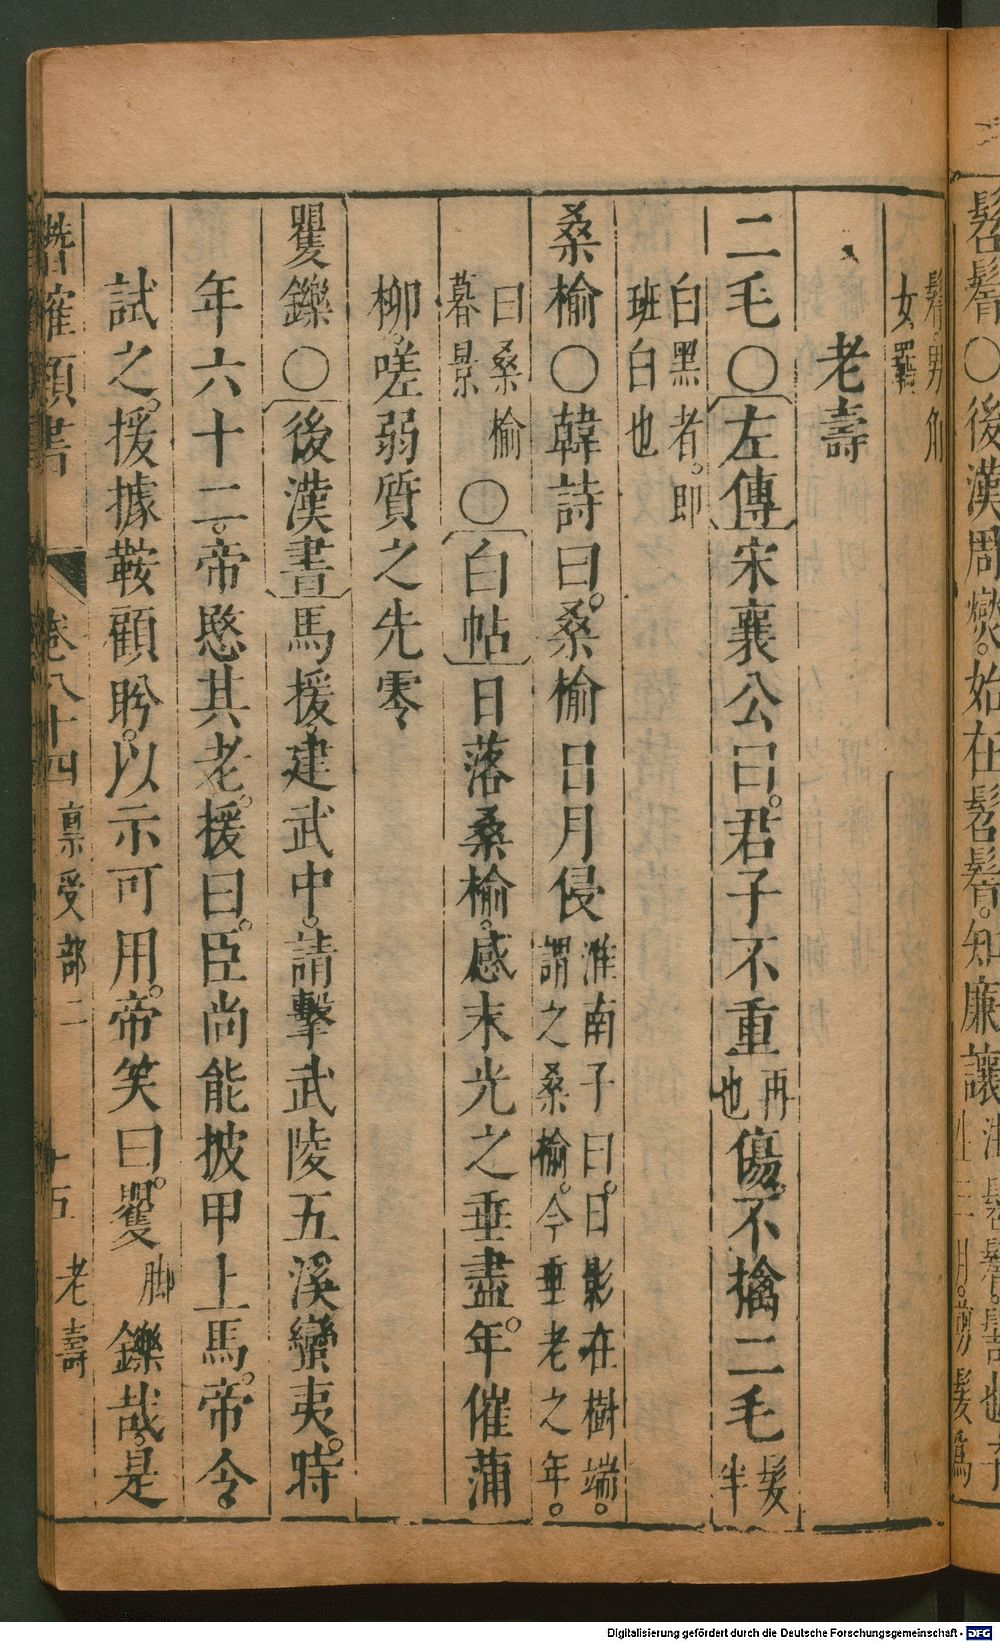 髫髾〇後漢周燮始在髫髾知廉讓
髾男角
女羈
老壽
二毛〇左傳宋襄公曰君子不重再也傷不擒二毛髮半
白黑者即班白也
桑榆〇韓詩曰桑榆日月侵淮南子曰日影在樹端謂之桑榆今垂老之年
曰桑榆暮景〇白帖日落桑榆感末光之垂盡年催蒲
柳嗟弱質之先零
矍鑠〇後漢書馬援建武中請擊武陵五溪蠻夷時
年六十二帝愍其老援曰臣尚能披甲上馬帝令
試之援據鞍顧盻以示可用帝笑曰矍脚鑠哉是
潛確類書 卷八十四 稟受部二 十五 老壽
Digitalisierung gefördert durch die Deutsche Forschungsgemeinschaft - DFG